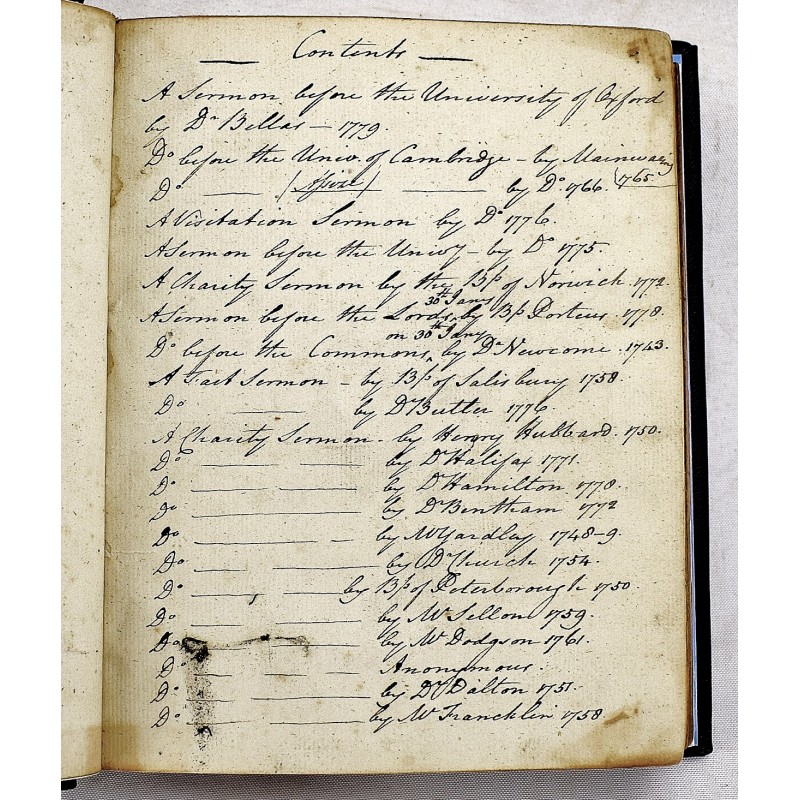 — Contents —
A Sermon before the University of Oxford
by Dr Bellas — 1779.
Do before the Univ. of Cambridge — by Mainwaring 1765
Do — (Assize) — by Do. 1766.
A Visitation Sermon by Do 1776.
A Sermon before the Univy — by Do 1775.
A Charity Sermon by the Bp of Norwich 1772
A Sermon before the Lords 30th Jany by Bp Porteus. 1778.
Do before the Commons on 30th Jany by Dr Newcome. 1743.
A Fast Sermon — by Bp of Salisbury 1758.
Do — by Dr Butler 1776
A Charity Sermon. by Henry Hubbard. 1750.
Do — by Dr Halifax 1771.
Do — by Dr Hamilton 1778.
Do — by Dr Bentham 1772
Do — by Mr Yardley 1748-9.
Do — by Dr Church 1754.
Do — by Bp of Peterborough 1750.
Do — by Mr Sellon 1759.
Do — by Mr Dodgson 1761.
Do — Anonymous.
Do — by Dr Dalton 1751.
Do — by Mr Francklin 1758.